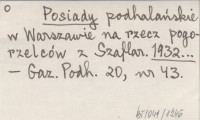 Posiady podhalańskie
w Warszawie na rzecz pogo-
rzelców z Szaflar. 1932...
- Gaz. Podh. 20, nr 43.